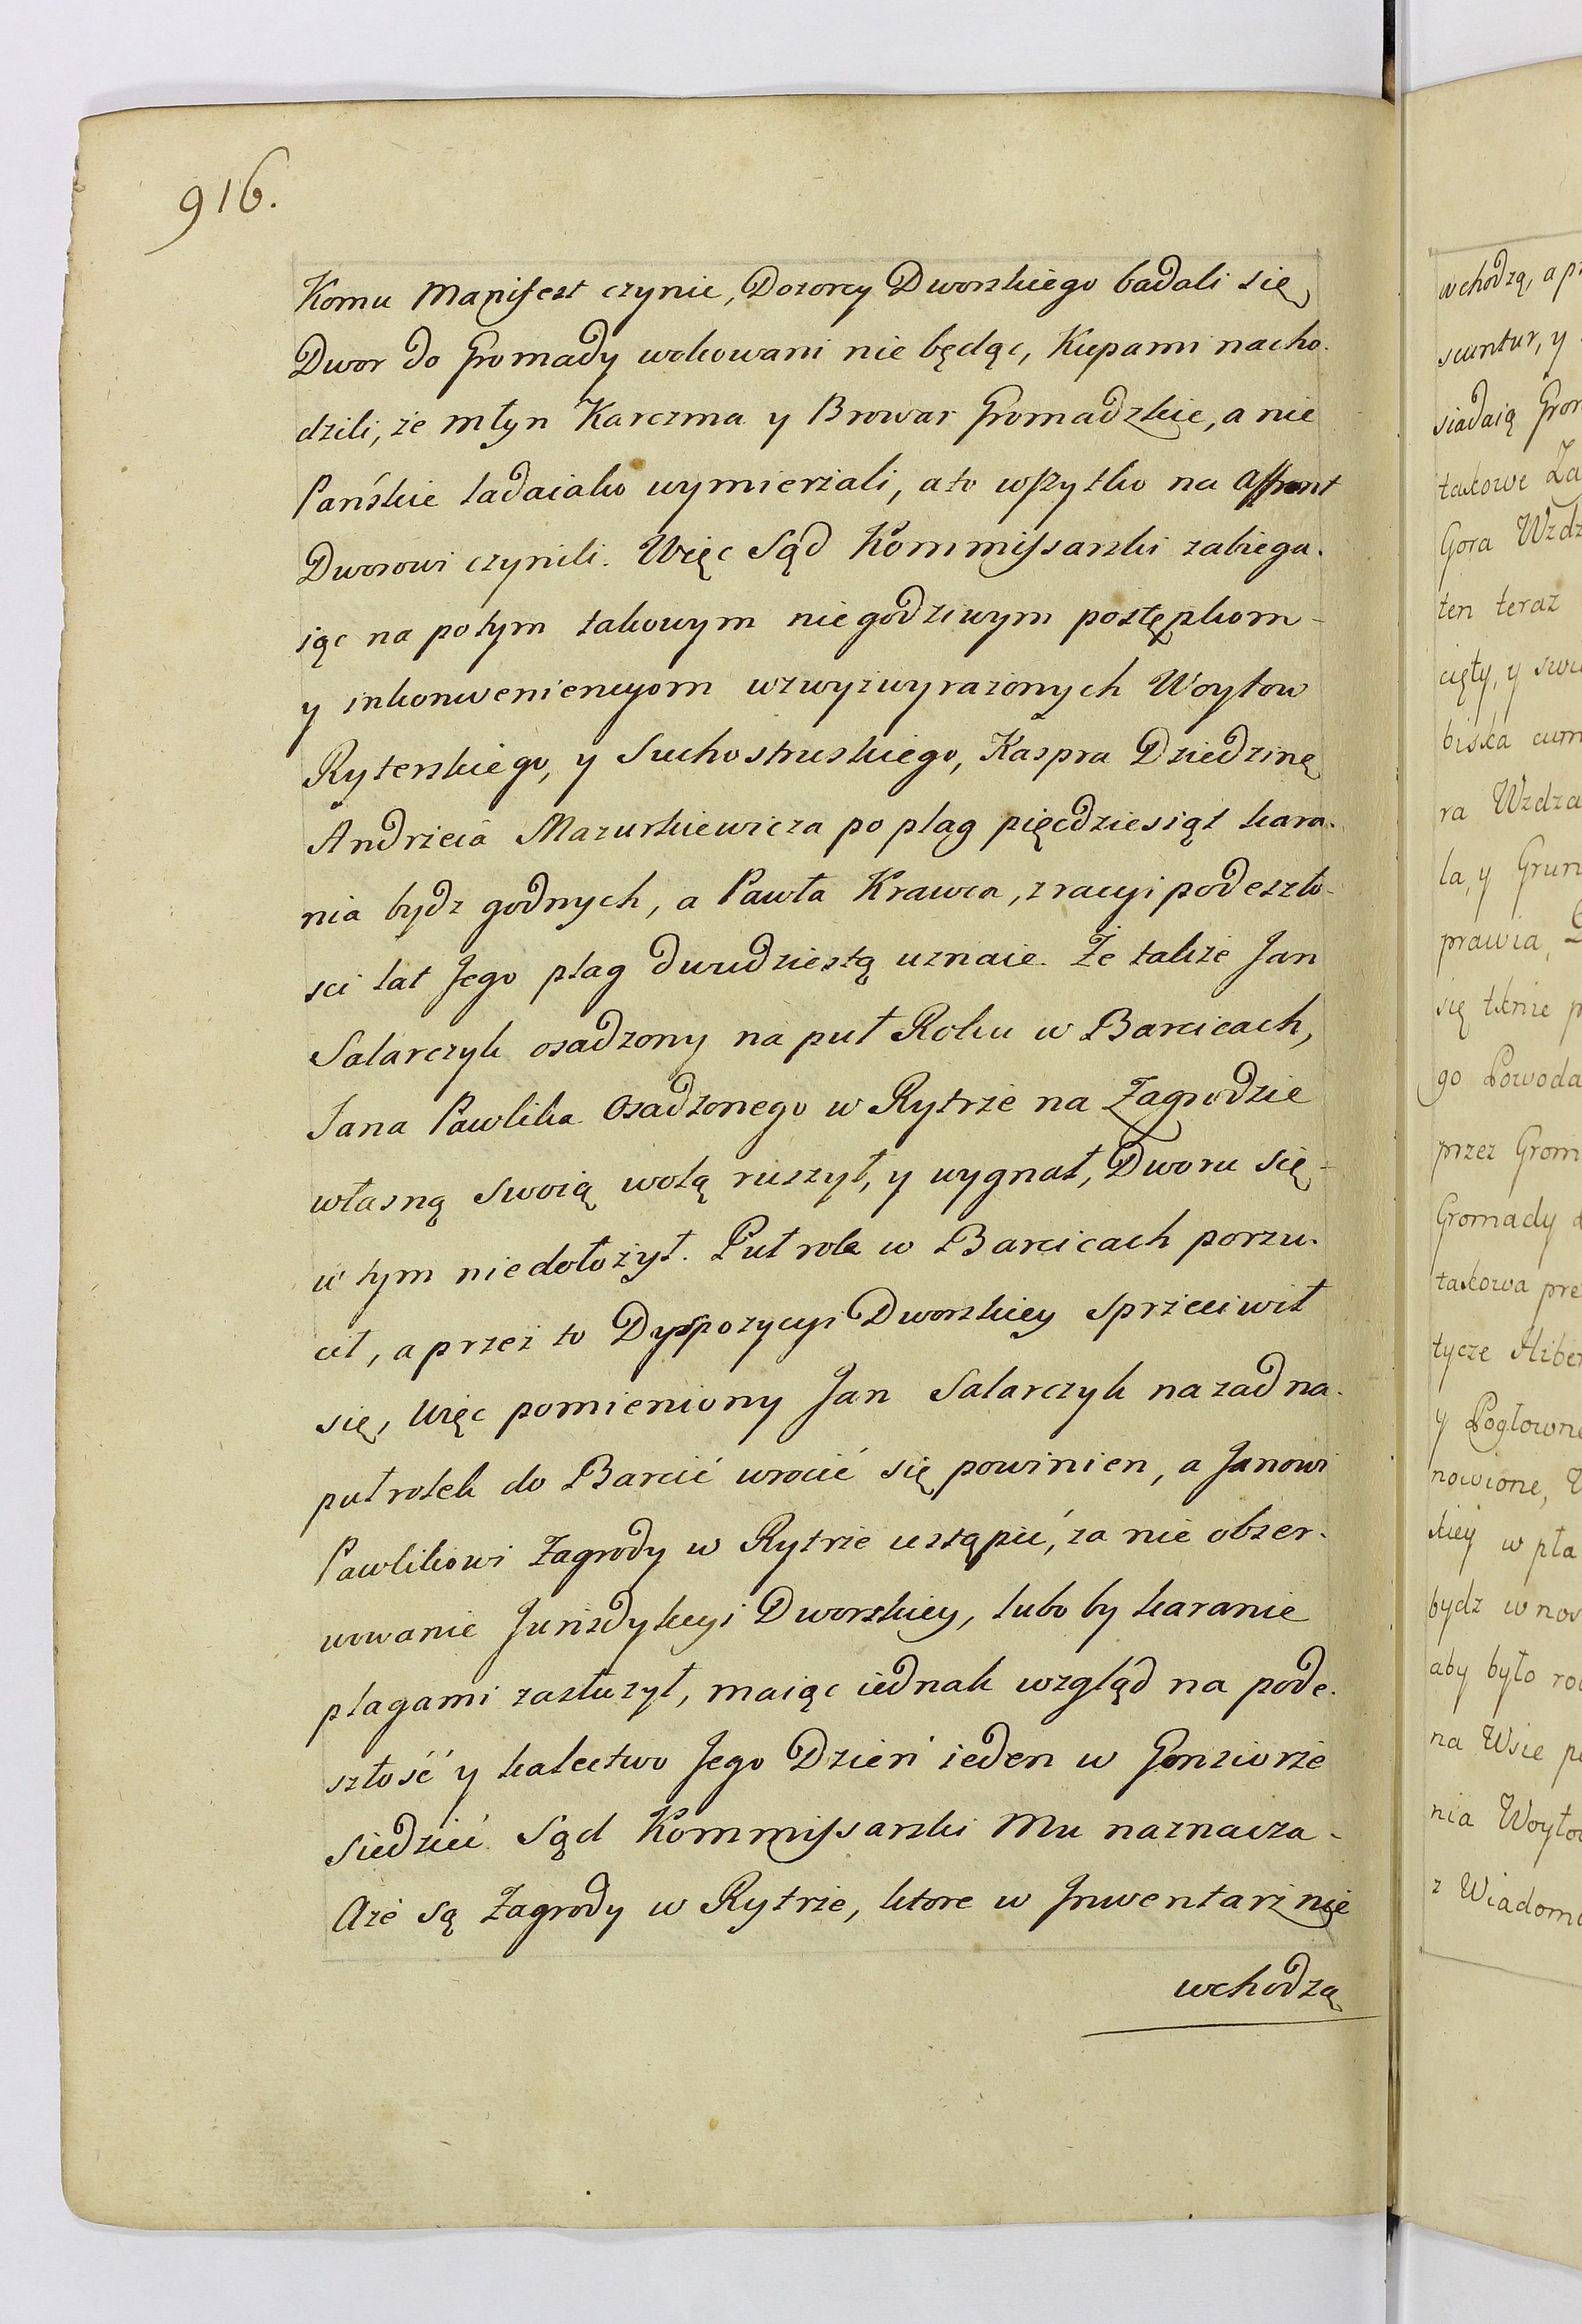 916.
Komu Manifest czynic, Dozorcy Dworskiego badali się
Dwor do Gromady wokowani nie będąc, Kupami nacho-
dzili, że młyn Karczma y Browar Gromadzkie, a nie
Pańskie ladaiako wymierzali, a to wszytko na Affront
Dworowi czynili. Więc Sąd Kommissarski zabiega-
iąc na potym takowym niegodziwym postępkom -
y inkonweniencyom wzwyzwyrazonych Woytow
Ryterskiego, y Suchostruskiego, Kaspra Dziedzinę
Andrzeia Mazurkiewicza po plag pięcdziesiąt kara-
nia bydz godnych, a Pawła Krawca, z racyi podeszło-
sci lat Jego plag dwudziestą uznaie. Że także Jan
Salarczyk osadzony na puł Roku w Barcicach,
Jana Pawlika Osadzonego w Rytrze na Zagrodzie
własną swoią wolą ruszył, y wygnał, Dworu się -
w tym niedołożył. Puł rola w Barcicach porzu-
cił, a przez to Dyspozycyi Dworskiey sprzeciwił
się, Więc pomieniony Jan Salarczyk nazad na-
puł rolek do Barcić wrocić się powinien, a Janowi
Pawlikowi Zagrody w Rytrze ustąpić, za nie obser-
wowanie Jurisdykcyi Dworskiey, lubo by karanie
plagami zasłużył, maiąc iednak wzgląd na pode-
szłość y kalectwo Jego Dzień ieden w Gonsiorze
siedzieć Sąd Kommissarski Mu naznacza -
Aże są Zagrody w Rytrze, ktore w Inwentarz nie
wchodzą
wchodzą, a
scuntur, y
siadaią
takowe
Gora
ten teraz
cięty, y
biska cum
ra
la, y
prawia,
się tknie
go Powoda
przez
Gromady
takowa
tycze
y
nowione,
kiey w
bydz w
aby było
na Wsie
nia
z